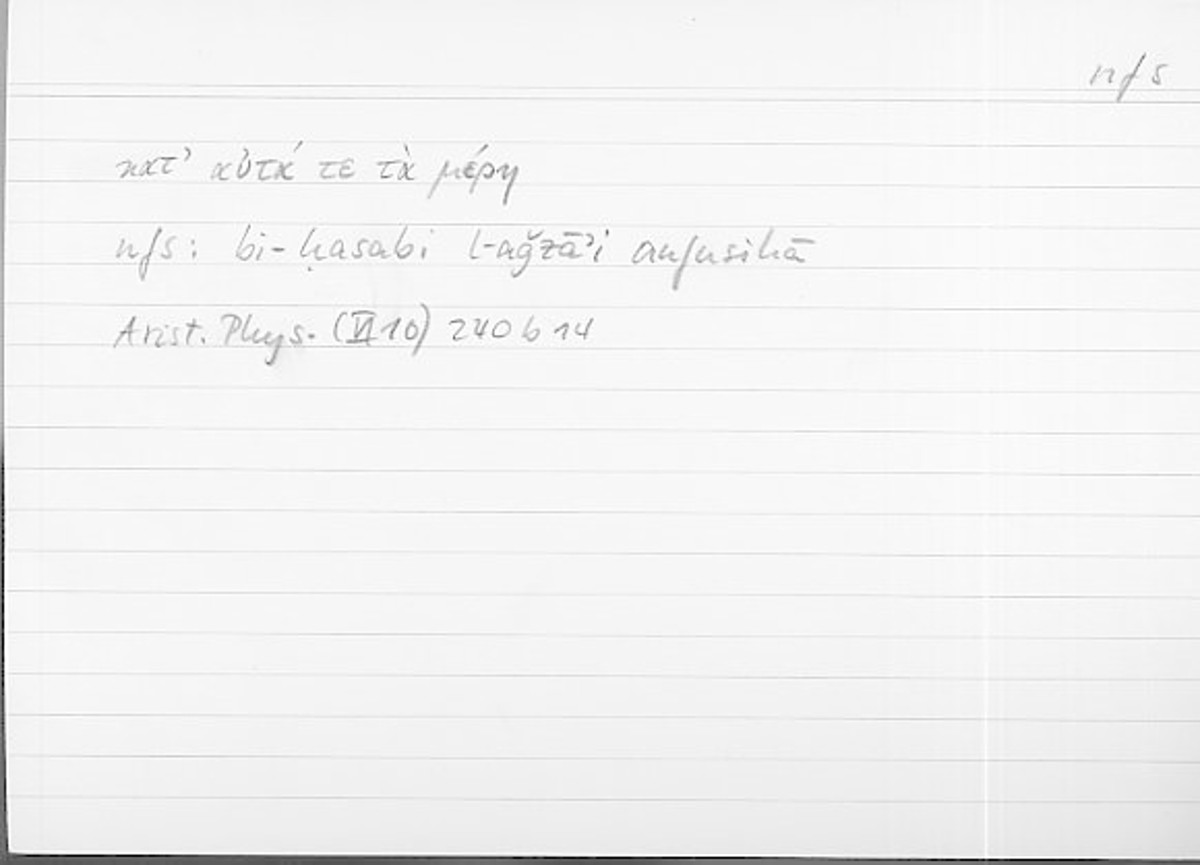 nfs
κατ' αὐτά τε τὰ μέρη
nfs: bi-ḥasabi l-aǧzāʾi anfusihā
Arist. Phys. (VI 10) 240 b 14